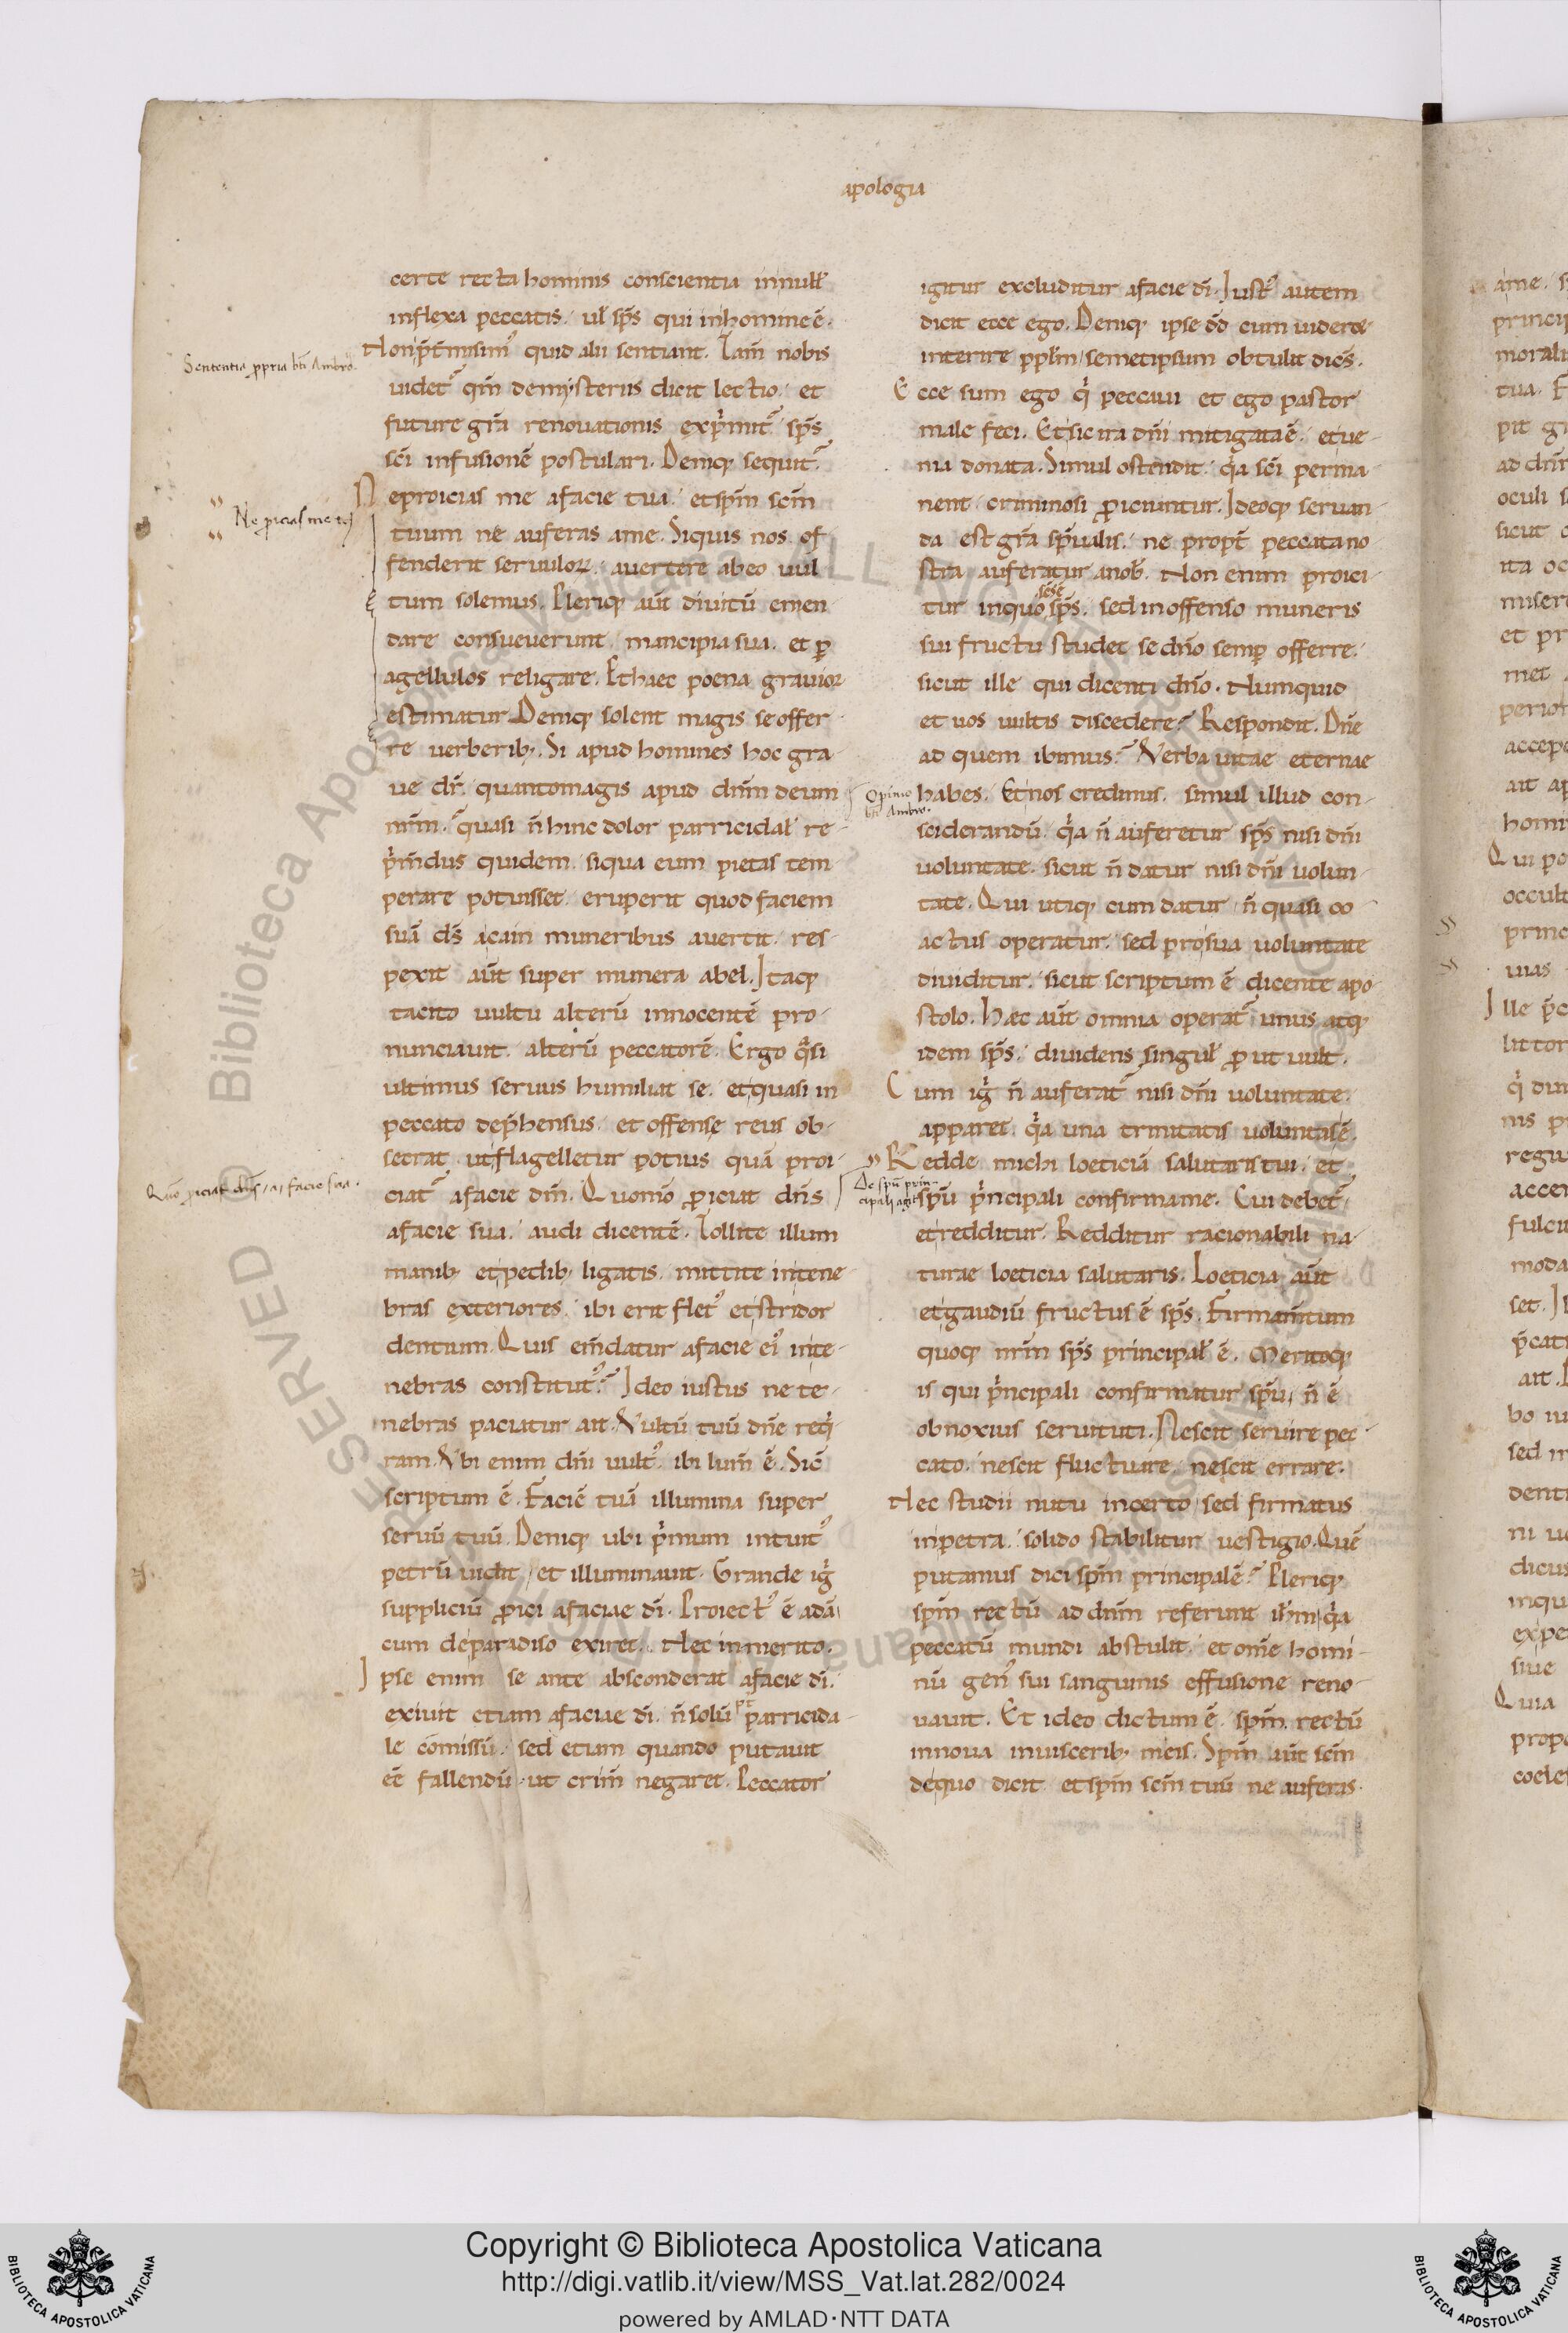 apologia
certe recta hominis conscientia in null᷒
inflexa peccatis. ul̄ sp̄s qui in homine ē.
Non p̄t̄misim᷒ quid alii sentiant. Iam̄ nobis
uidet᷒ qm̄ de mysteriis dicit lectio. et
future gr̄a renouationis exp̓mit᷒ sp̄s
sc̄i infusionē postulari. Deniq; sequit᷒.
Ne proicias me a facie tua. et sp̄m sc̄m
tuum ne auferas a me. Siquis nos of
fenderit seruuloꝝ. auertere ab eo uul
tum solemus. Pleriq; aūt diuitū emen
dare consueuerunt mancipia sua. et ꝑ
agellulos religare. Et haec poena grauior
estimatur. Deniq; solent magis se offer
re uerberib;. Si apud homines hoc gra-
ue dr̄. quanto magis apud dn̄m deum
nr̄m. quasi n̄ hinc dolor parricidal᷒ re-
p̓m̄dus quidem. siqua eum pietas tem
perare potuisset. eruperit quod faciem
suā ds̄ a cain muneribus auertit. res-
pexit aūt super munera abel. Itaq;
tacito uultu alterū innocentē pro-
nunciauit. alterū peccatorē. Ergo q̓si
ultimus seruus humiliat se. et quasi in
peccato dep̄hensus. et offense reus ob-
secrat ut flagelletur potius quā proi-
ciat᷒ a facie dn̄i. Quomō ꝓiciat dn̄s
a facie sua. audi dicentē. Tollite illum
manib; et pedib; ligatis. mittite in tene-
bras exteriores. ibi erit flet᷒ et stridor
dentium. Quis em̄datur a facie ei᷒ in te-
nebras constitut᷒? Ideo iustus ne te-
nebras paciatur ait. Vultū tuū dn̄e req̓-
ram. Vbi enim dn̄i uult᷒. ibi lum̄ ē. Sic̄
scriptum ē. Faciē tuā illumina super
seruū tuū. Deniq; ubi p̓mum intuit᷒
petrū uidit, et illuminauit. Grande ig̓
suppliciū ꝓici a faciae dī. Proiect᷒ ē adā
cum de paradiso exiret. Nec inmerito.
Ipse enim se ante absconderat a facie dī.
exiuit etiam a faciae dī. n̄ solū parricida-
le comissū. sed etiam quando putauit
eē fallendū. ut crim̄ negaret. Peccator
igitur excluditur a facie dī. Iust᷒ autem
dicit ecce ego. Deniq; ipse dd̄ cum uideret
interire pplm̄ semetipsum obtulit dicēs.
Ecce sum ego q̓ peccaui et ego pastor
male feci. Et sic ira dn̄i mitigata ē. et ue-
nia donata. Simul ostendit. q̓a sc̄i perma-
nent criminosi ꝓiciuntur. Ideoq; seruan-
da est gr̄a sp̄ualis. ne propt̄ peccata no-
stra auferatur a nob̄. Non enim proici-
tur in quo
sc̄s ē
sp̄s. sed inoffenso muneris
sui fructu studet se dn̄o semp̄ offerre.
sicut ille qui dicenti dn̄o. Numquid
et uos uultis discedere? Respondit. Dn̄e
ad quem ibimus? Verba uitae eternae
habes. Et nos credimus. simul illud con-
sciderandū. q̓a n̄ auferetur sp̄s nisi dn̄i
uoluntate. sicut n̄ datur nisi dn̄i uolun-
tate. Qui utiq; cum datur n̄ quasi co
actus operatur. sed pro sua uoluntate
diuiditur. sicut scriptum ē dicente apo-
stolo. Haec aūt omnia operat᷒ unus atq;
idem sp̄s. diuidens singul᷒ ꝓut uult.
Cum ig̓ n̄ auferat᷒ nisi dn̄i uoluntate.
apparet. q̓a una trinitatis uoluntas ē.
Redde michi loeticiā salutaris tui. et
sp̄u p̓ncipali confirma me. Cui debet᷒
et redditur. Redditur racionabili na-
turae loeticia salutaris. Loeticia aūt
et gaudiū fructus ē sp̄s. Firmam̄tum
quoq; nr̄m sp̄s principal᷒ ē. Meritoq;
is qui p̓ncipali confirmatur sp̄u, n̄ ē
obnoxius seruituti. Nescit seruire pec-
cato. nescit fluctuare. nescit errare.
Nec studii nutu incerto, sed firmatus
in petra. solido stabilitur uestigio. Quē
putamus dici sp̄m principalē? Pleriq;
sp̄m rectū ad dn̄m referunt ih̄m, q̓a
peccatū mundi abstulit. et om̄e homi-
nū gen᷒ sui sanguinis effusione reno-
uauit. Et ideo dictum ē. sp̄m rectū
innoua in uisceribꝫ meis. Sp̄m aūt sc̄m
de quo dicit et sp̄m sc̄m tuū ne auferas
Sententia ꝓpria bt̄i Ambro.
Ne ꝓicias me
Quō ꝓiciat dn̄s a facie sua.
Opinio
bt̄i Ambro.
De sp̄u prin-
cipali agit
RESERVED Biblioteca Apostolica Vaticana ALL
Copyright © Biblioteca Apostolica Vaticana
http://digi.vatlib.it/view/MSS_Vat.lat.282/0024
powered by AMLAD·NTT DATA
BIBLIOTECA APOSTOLICA VATICANA
BIBLIOTECA APOSTOLICA VATICANA